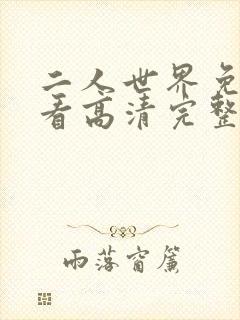 二人世界免
看高清完整
雨落窗簾